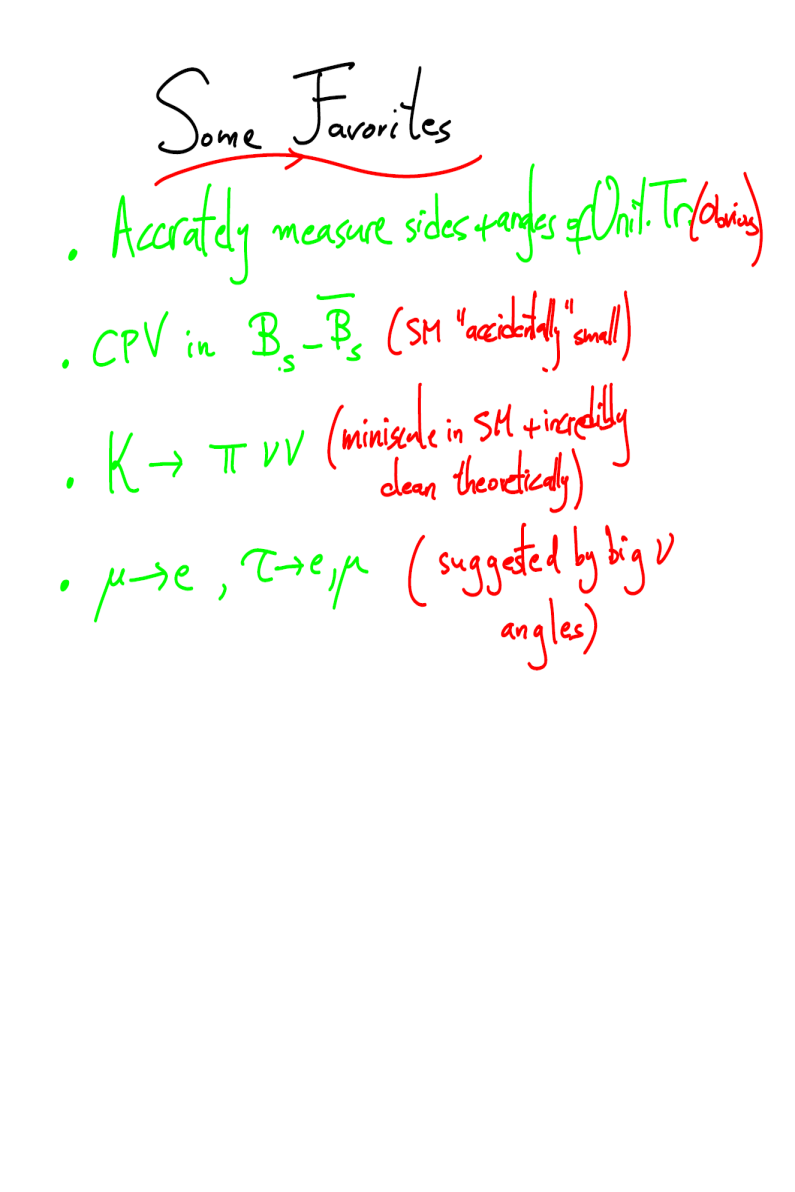 Some Favorites
• Accrately measure sides + angles of Unit. Tr. (obvious)
• CPV in B_s – B̅_s (SM "accidentally" small)
• K → π ν ν (miniscule in SM + incredibly
clean theoretically)
• μ → e , τ → e, μ (suggested by big ν
angles)